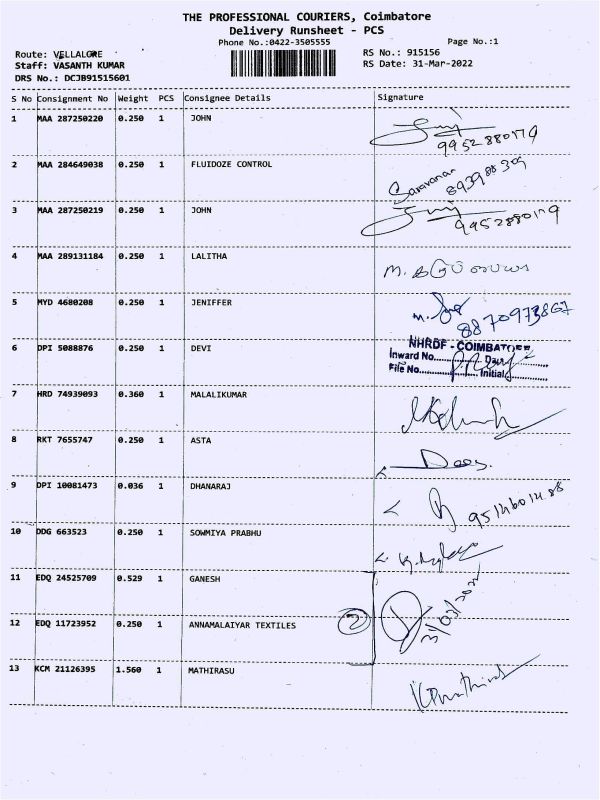 THE PROFESSIONAL COURIERS, Coimbatore
Delivery Runsheet - PCS
Phone No.:0422-3505555
Page No.:1
Route: VELLALORE
RS No.: 915156
Staff: VASANTH KUMAR
RS Date: 31-Mar-2022
DRS No.: DCJB91515601
S No Consignment No Weight PCS Consignee Details Signature
1 MAA 287250220 0.250 1 JOHN
9952880179
2 MAA 284649038 0.250 1 FLUIDOZE CONTROL
Saravanan
3 MAA 287250219 0.250 1 JOHN
9952880179
4 MAA 289131184 0.250 1 LALITHA
5 MYD 4680208 0.250 1 JENIFFER
8870973867
6 DPI 5088876 0.250 1 DEVI
NHRDF - COIMBATORE
Inward No. Date
File No. Initial
7 HRD 74939093 0.360 1 MALALIKUMAR
8 RKT 7655747 0.250 1 ASTA
9 DPI 10081473 0.036 1 DHANARAJ
9514601488
10 DDG 663523 0.250 1 SOWMIYA PRABHU
11 EDQ 24525709 0.529 1 GANESH
31/03/2022
12 EDQ 11723952 0.250 1 ANNAMALAIYAR TEXTILES 2
13 KCM 21126395 1.560 1 MATHIRASU